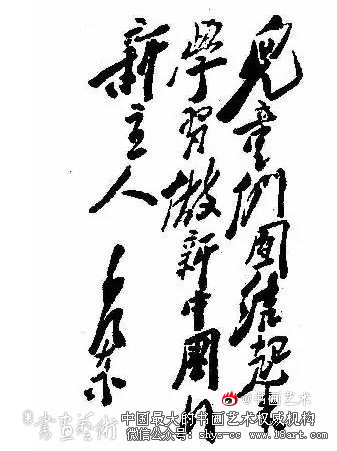 兒童们团結起来
學習做新中國的
新主人
毛澤東
@书画艺术
書畫藝術
中国最大的书画艺术权威机构
微信公众号：shys-cc www.16art.com